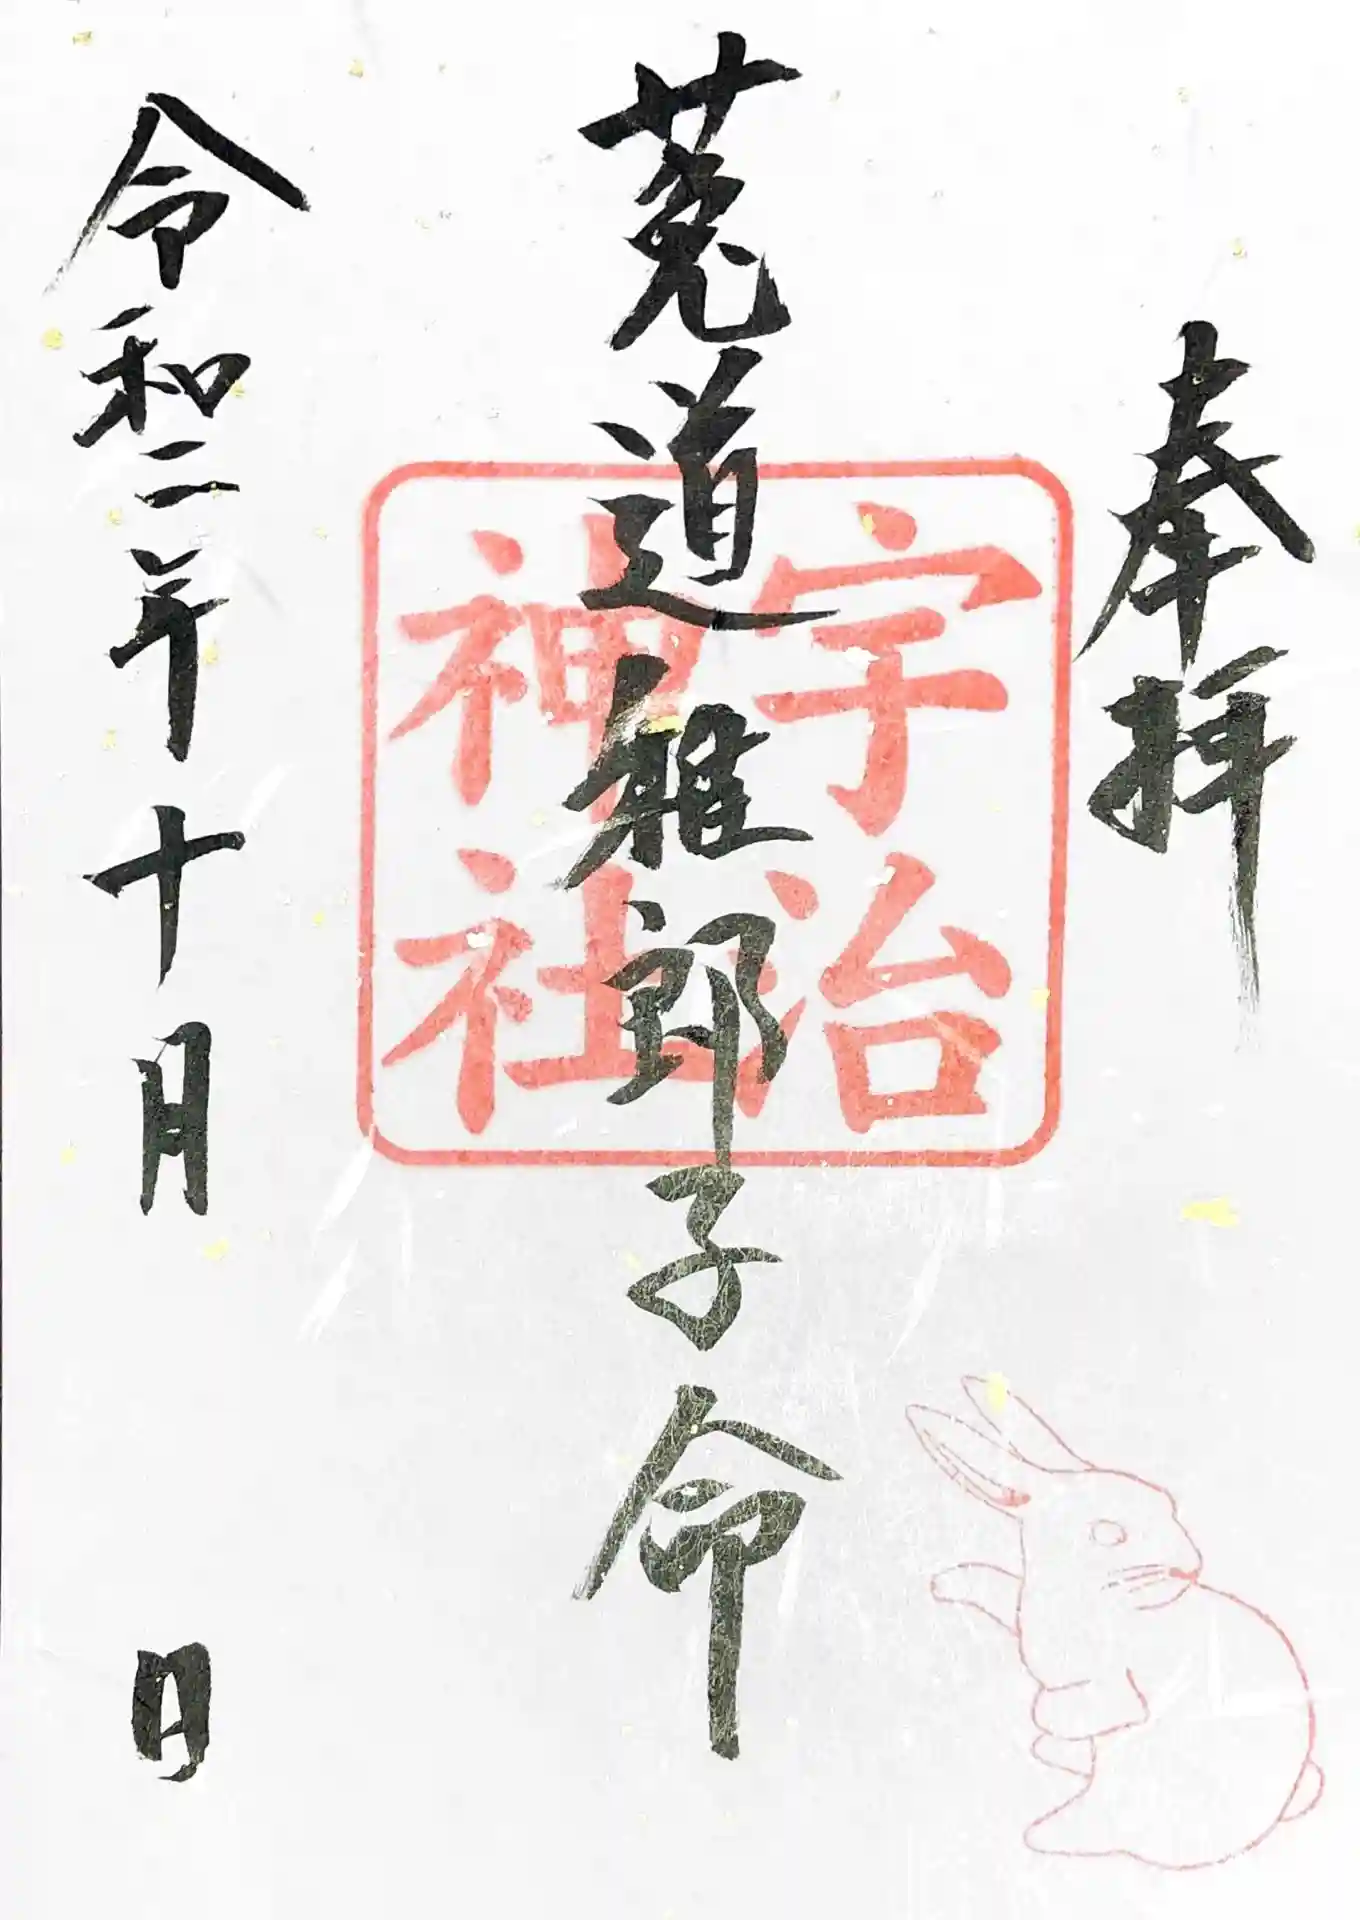 奉拝
菟道雅郎子命
宇治
神社
令和二年十月 日